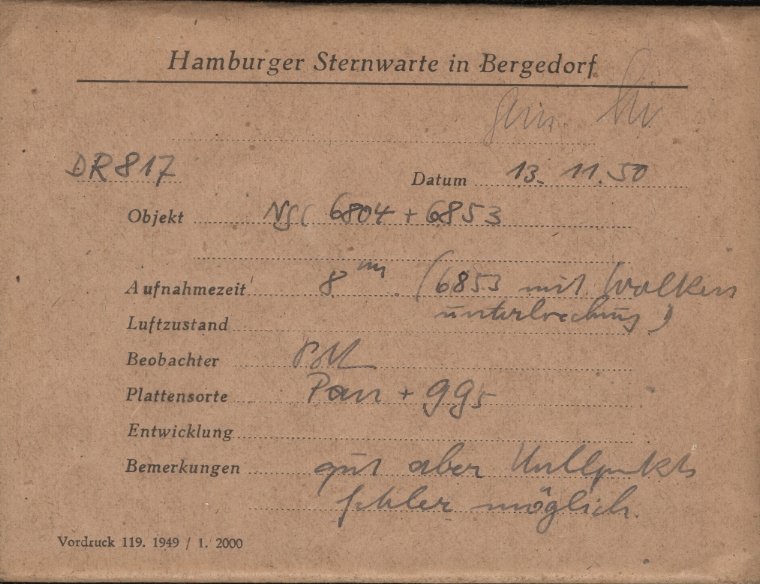 Hamburger Sternwarte in Bergedorf
DR 817
Datum 13. 11. 50
Objekt NGC 6804 + 6853
Aufnahmezeit 8 m (6853 mit Wolken
unterbrechung)
Luftzustand
Beobachter
Plattensorte Pan + gg5
Entwicklung
Bemerkungen gut aber Nullpunkts
fehler möglich.
Vordruck 119. 1949 / 1. 2000